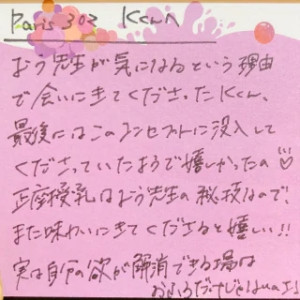 Paris 303 Kくんへ
よう先生が気になるという理由
で会いにきてくださったKくん、
最後にはこのコンセプトに没入して
くださっていたようで嬉しかったの
正座授乳はよう先生の秘技なので、
また味わいにきてくださると嬉しい!!
実は自分の欲が解消できる場は
おふろだけじゃ